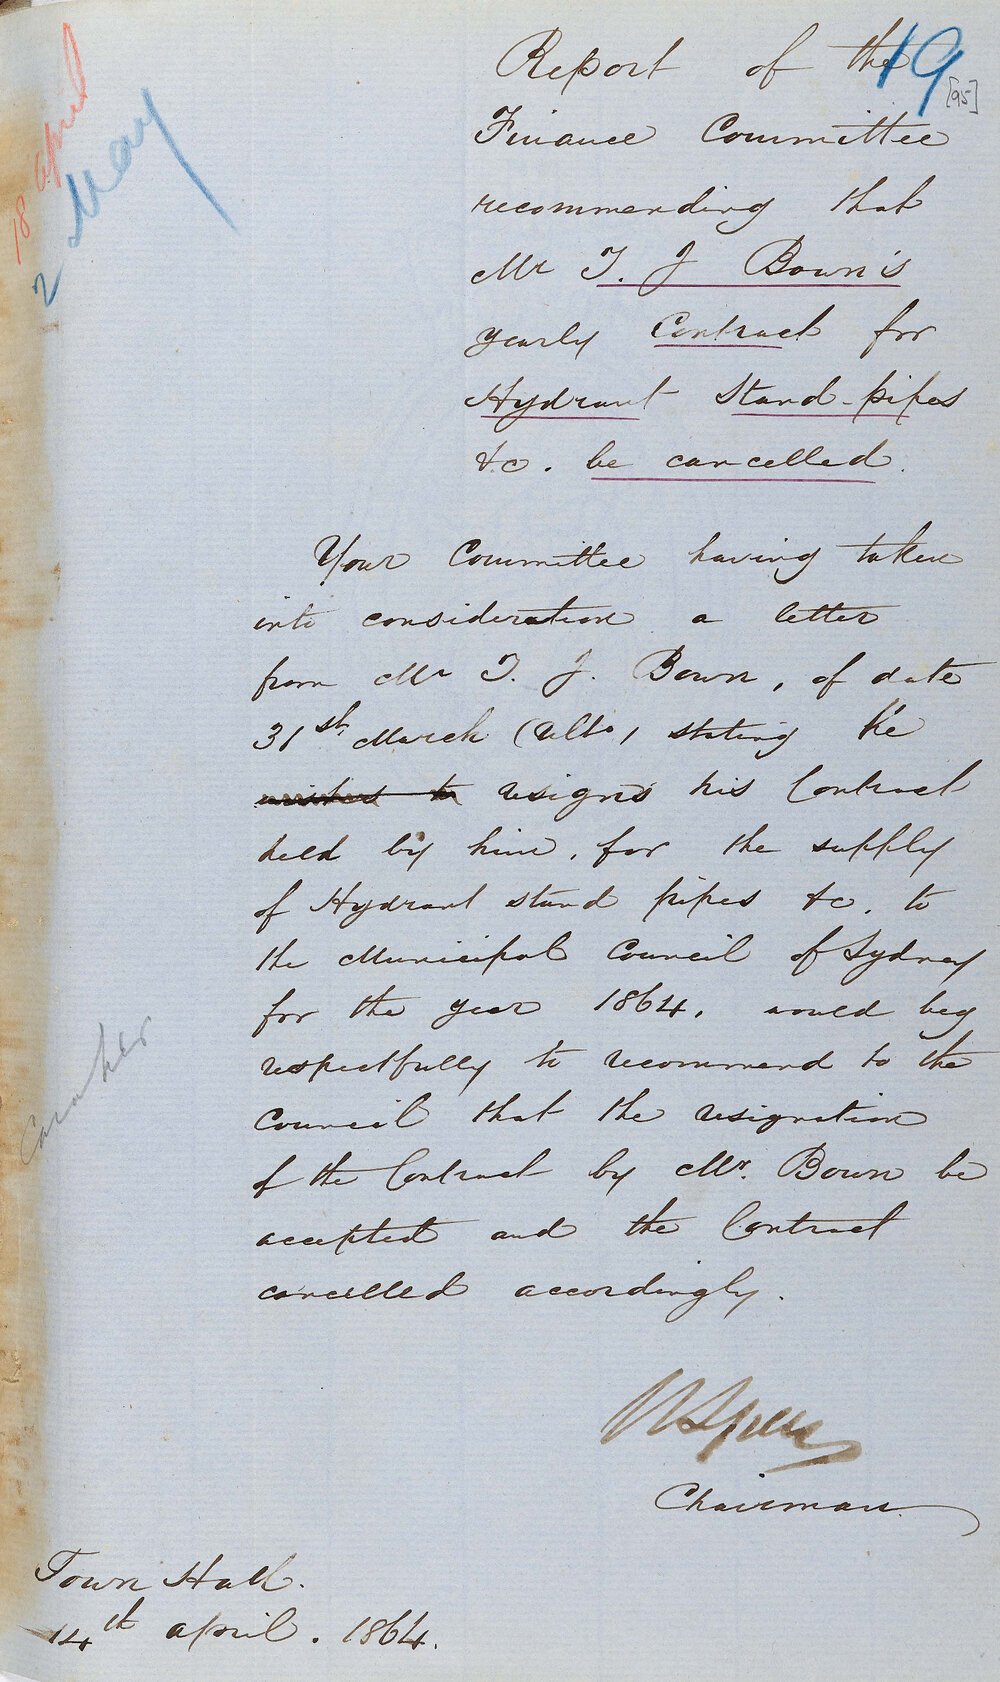 18 April
2 May
19
[95]
Report of the
Finance Committee
recommending that
Mr T. J Bown's
yearly Contract for
Hydrant Stand-pipes
&c. be cancelled.
Your Committee having taken
into consideration a letter
from Mr T. J. Bown, of date
31st March (Ulto) stating he
wishes to resigns his Contract
held by him, for the supply
of Hydrant stand pipes &c. to
the Municipal Council of Sydney
for the year 1864, would beg
respectfully to recommend to the
Council that the resignation
of the Contract by Mr. Bown be
accepted and the Contract
cancelled accordingly.
Chairman.
Town Hall.
14th April. 1864.